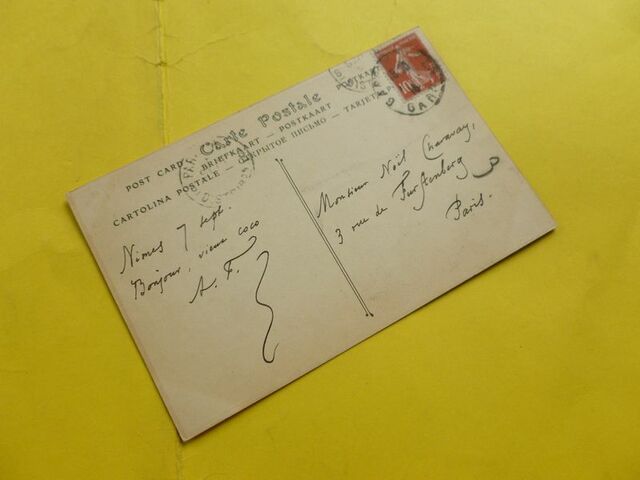 Carte Postale
POST CARD — BRIEFKAART — POSTKAART
CARTOLINA POSTALE — ОТКРЫТОЕ ПИСЬМО — TARJETA
Nimes 7 sept.
Bonjour, vieux coco
A. F.
Monsieur Noël Charavay,
3 rue de Furstenberg
Paris.
GARE
10